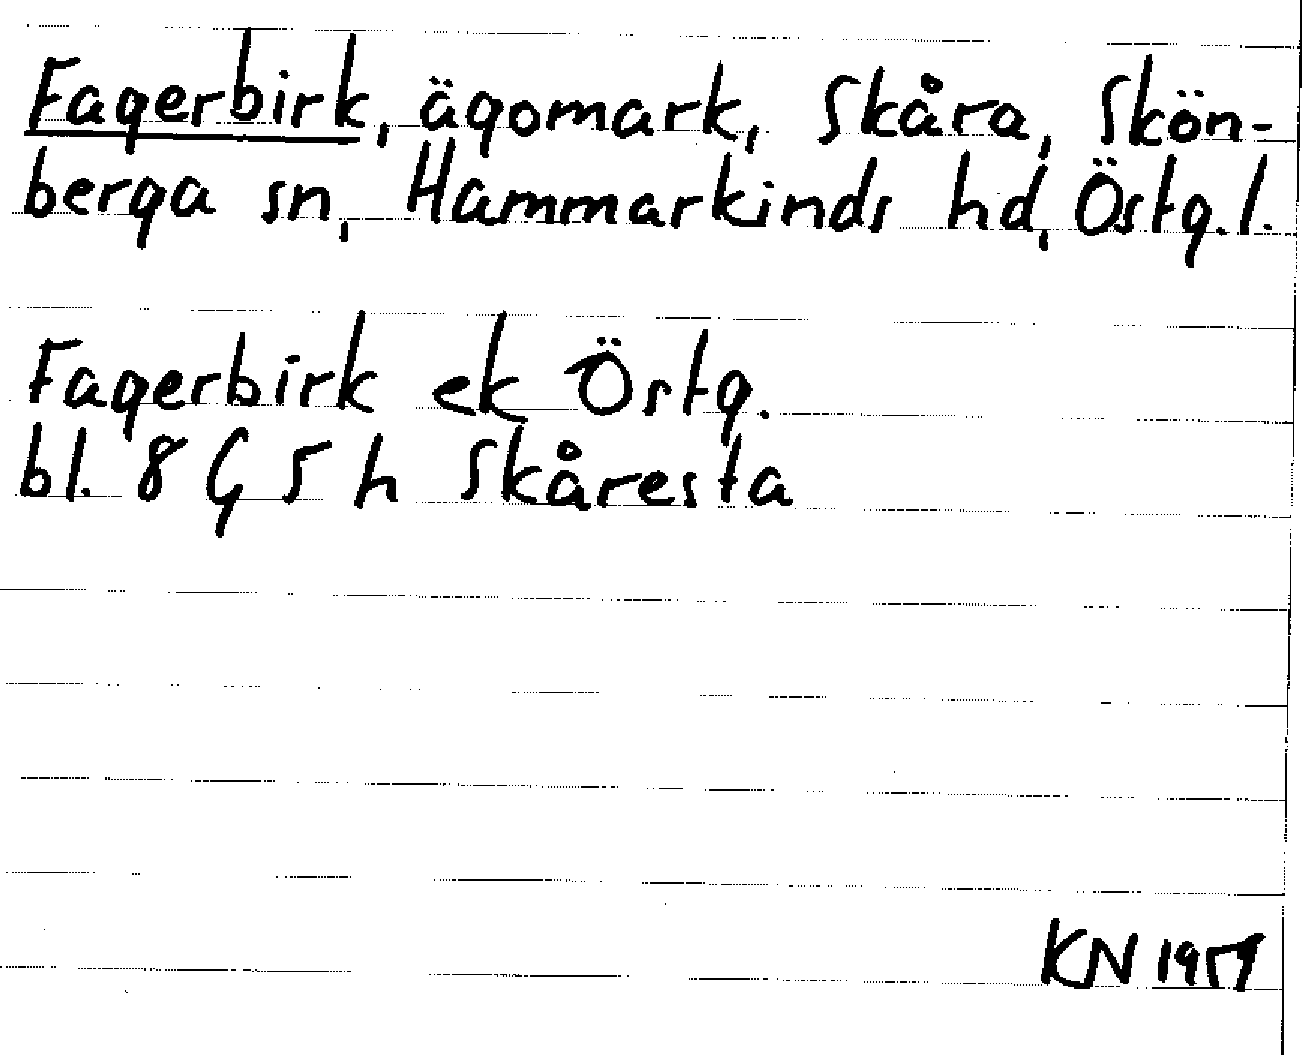 Fagerbirk, ägomark, Skåra, Skön-
berga sn, Hammarkinds hd, Östg. l.
Fagerbirk ek Östg.
bl. 8 G 5 h Skåresta
KN